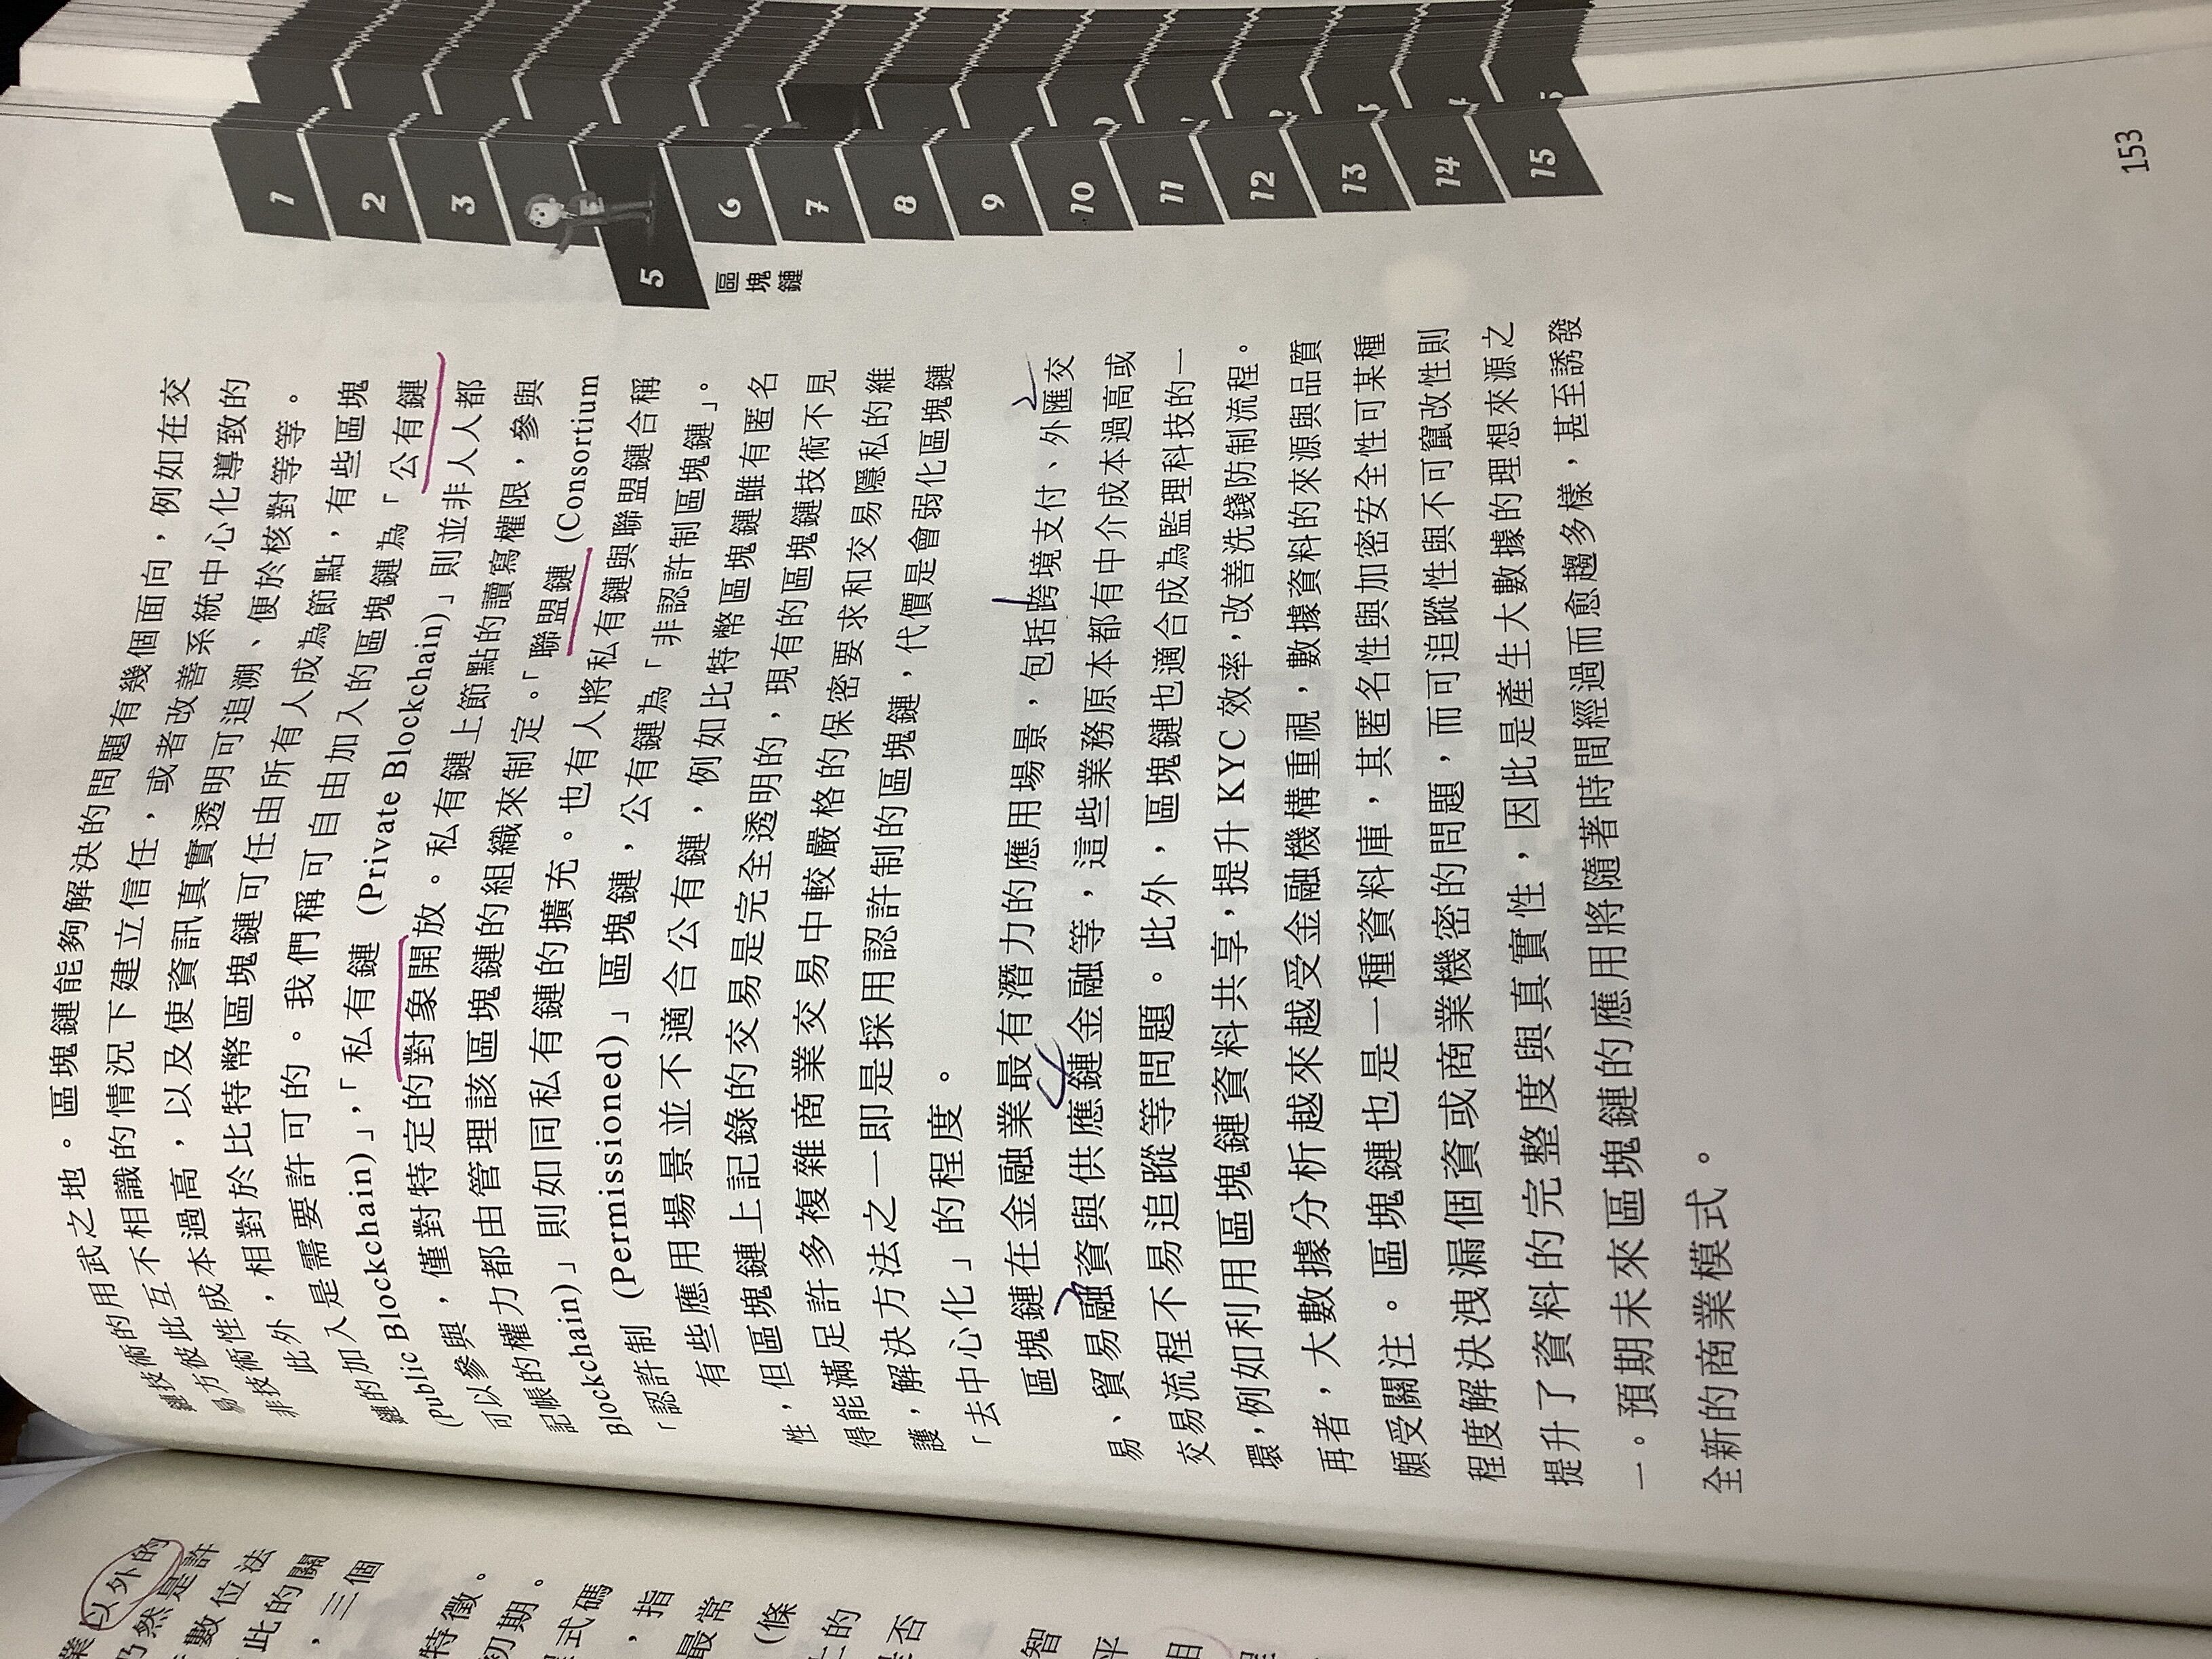 鏈技術的用武之地。區塊鏈能夠解決的問題有幾個面向，例如在交
易方彼此互不相識的情況下建立信任，或者改善系統中心化導致的
非技術性成本過高，以及使資訊真實透明可追溯、便於核對等等。
此外，相對於比特幣區塊鏈可任由所有人成為節點，有些區塊
鏈的加入是需要許可的。我們稱可自由加入的區塊鏈為「公有鏈
(Public Blockchain)」，「私有鏈 (Private Blockchain)」則並非人人都
可以參與，僅對特定的對象開放。私有鏈上節點的讀寫權限，參與
記帳的權力都由管理該區塊鏈的組織來制定。「聯盟鏈 (Consortium
Blockchain)」則如同私有鏈的擴充。也有人將私有鏈與聯盟鏈合稱
「認許制 (Permissioned)」區塊鏈，公有鏈為「非認許制區塊鏈」。
有些應用場景並不適合公有鏈，例如比特幣區塊鏈雖有匿名
性，但區塊鏈上記錄的交易是完全透明的，現有的區塊鏈技術不見
得能滿足許多複雜商業交易中較嚴格的保密要求和交易隱私的維
護，解決方法之一即是採用認許制的區塊鏈，代價是會弱化區塊鏈
「去中心化」的程度。
區塊鏈在金融業最有潛力的應用場景，包括跨境支付、外匯交
易、貿易融資與供應鏈金融等，這些業務原本都有中介成本過高或
交易流程不易追蹤等問題。此外，區塊鏈也適合成為監理科技的一
環，例如利用區塊鏈資料共享，提升 KYC 效率，改善洗錢防制流程。
再者，大數據分析越來越受金融機構重視，數據資料的來源與品質
頗受關注。區塊鏈也是一種資料庫，其匿名性與加密安全性可某種
程度解決洩漏個資或商業機密的問題，而可追蹤性與不可竄改性則
提升了資料的完整度與真實性，因此是產生大數據的理想來源之
一。預期未來區塊鏈的應用將隨著時間經過而愈趨多樣，甚至誘發
全新的商業模式。
1
2
3
5
區塊鏈
6
7
8
9
10
11
12
13
14
15
153
業以外的
乃然是許
數位法
此的關
，三個
特徵。
初期。
式碼
，指
最常
(條
上的
是否
智
平